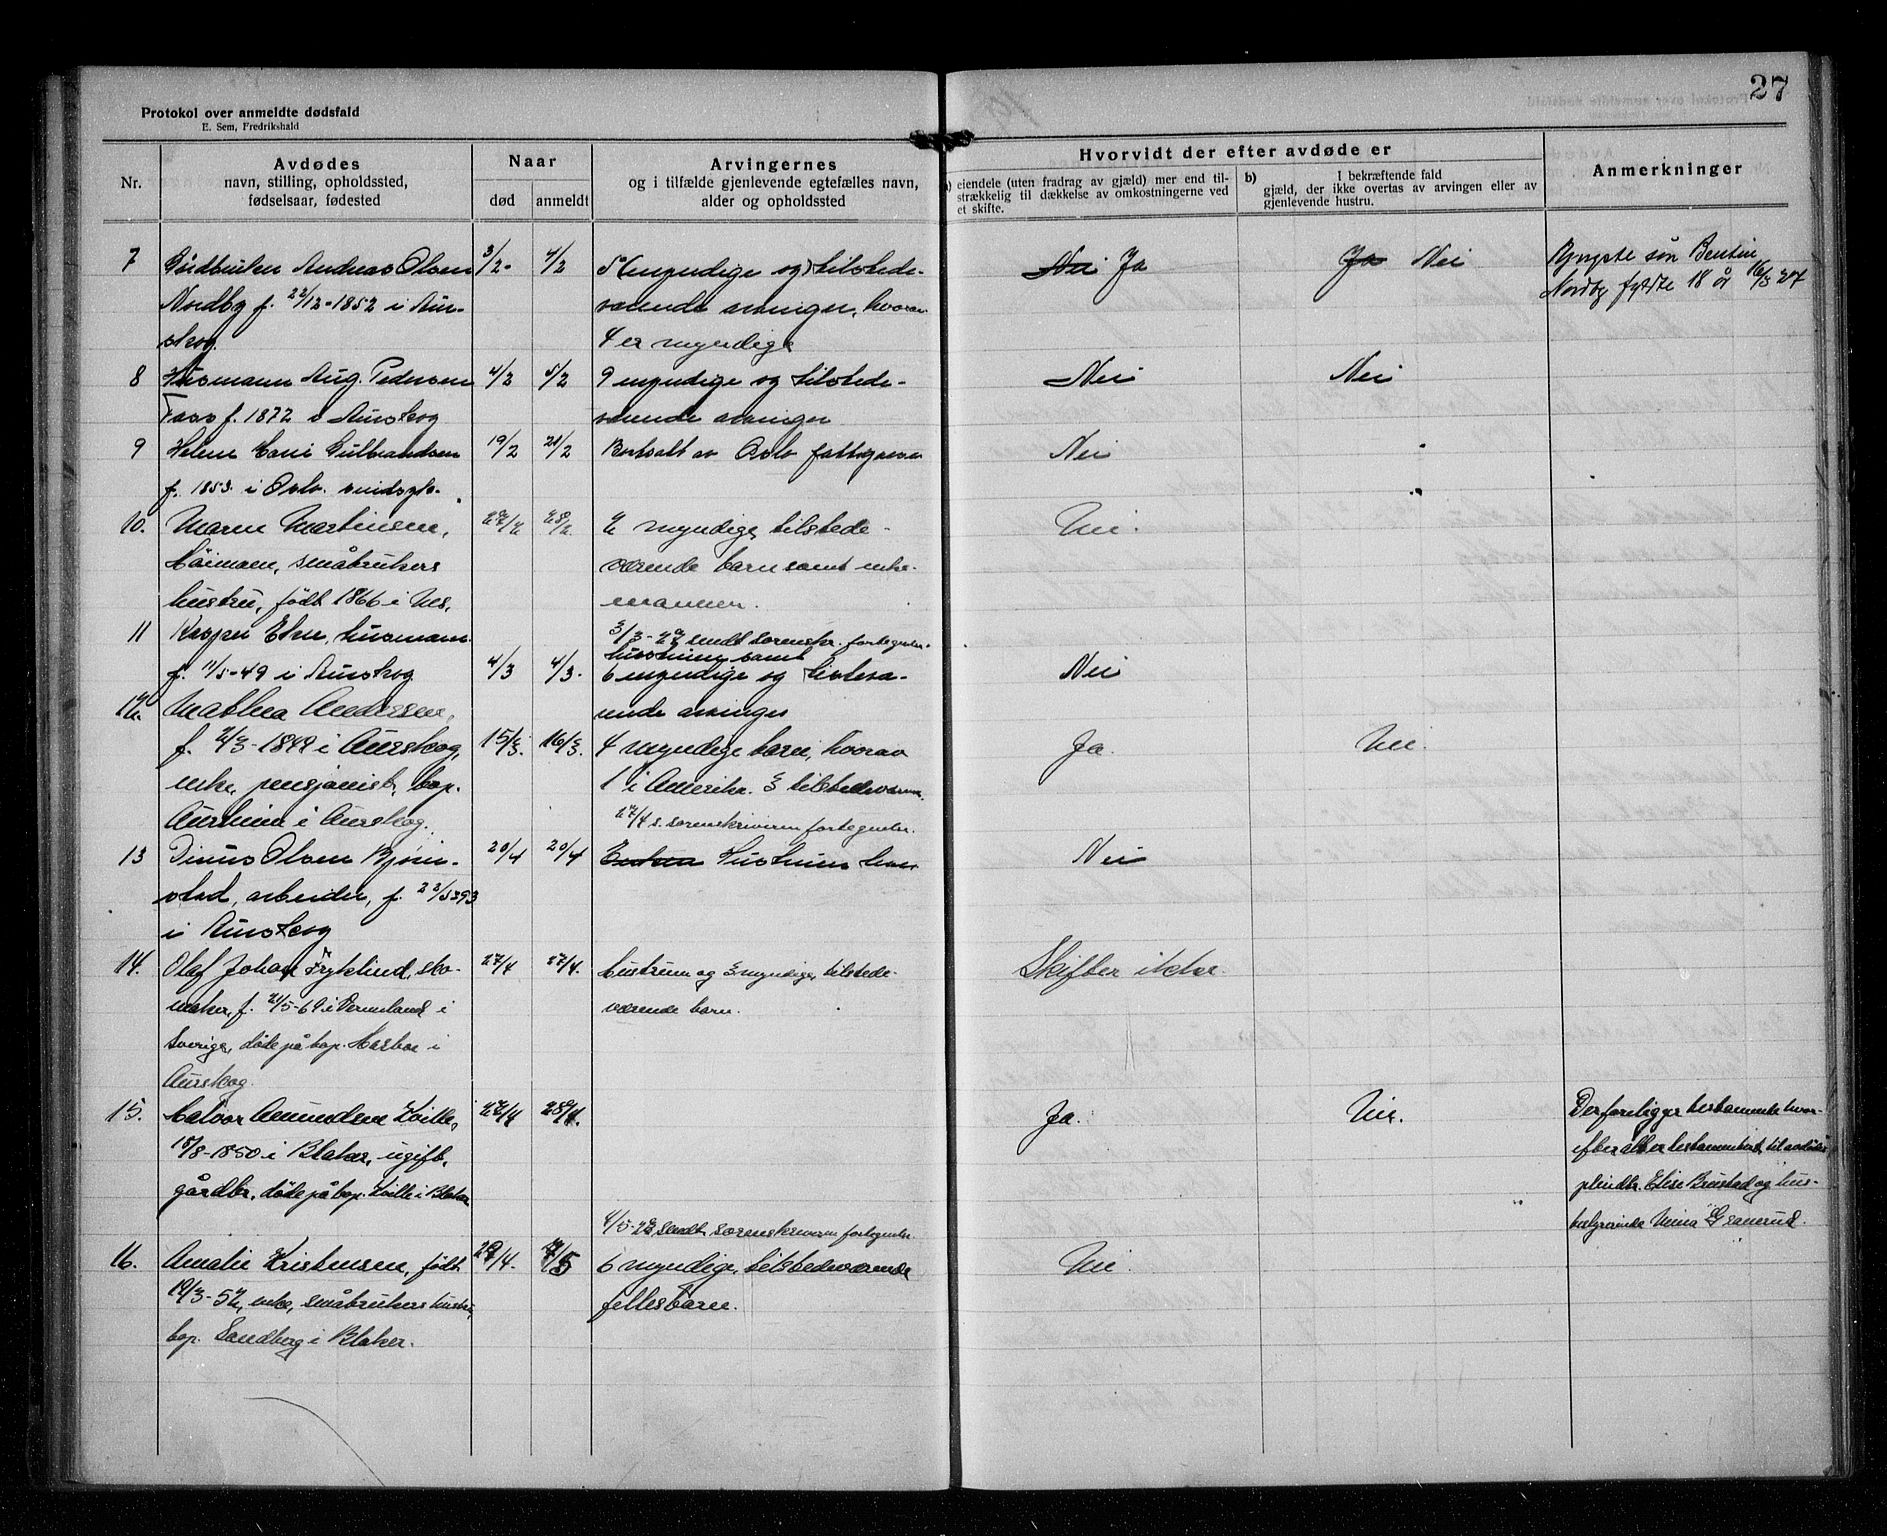 27
Protokol over anmeldte dødsfald
E. Sem, Fredrikshald
Nr.
Avdødes
navn, stilling, opholdssted,
fødselsaar, fødested
Naar
død
anmeldt
Arvingernes
og i tilfælde gjenlevende egtefælles navn,
alder og opholdssted
Hvorvidt der efter avdøde er
a) eiendele (uten fradrag av gjæld) mer end til-
strækkelig til dækkelse av omkostningerne ved
et skifte.
b) I bekræftende fald
gjæld, der ikke overtas av arvingen eller av
gjenlevende hustru.
Anmerkninger
7 Gårdbruker Andreas Olsen 3/2- 4/2 5 (myndige og) tilstede- Nei Ja Ja Nei Yngste søn
Nordby f. 22/12-1852 i Aur- værende arvinger, hvorav Nordby fyldte 18 år 16/3 27
skog. 4 er myndige
8 Husmann Aug. Pedersen 4/2 5/2 9 myndige og tilstede- Nei Nei
f. 1872 i Aurskog værende arvinger
9 Helene Gulbrandsen 19/2 21/2 Bortsatt av Oslo fattigvesen Nei
f. 1853 i Oslo.
10. Maren Martinsen, 27/2 28/2 2 myndige, tilstede- Nei.
småbrukers værende barn samt enke-
hustru, født 1866 i Nes. mannen.
11 Kasper husmann 3/3-27 sendt sorenskr. fortegnelse.
hustruen samt
f. 11/5-49 i Aurskog 4/3 4/3. 6 myndige og tilstevæ- Nei
12. Mathea Andersen, rende arvinger
f. 2/3-1849 i Aurskog, 15/3. 16/3. 4 myndige barn, hvorav Ja. Nei.
enke, pensjonist, bop. 1 i Amerika. 3 tilstedeværende.
i Aurskog. 27/4 s. sorenskriveren fortegnelse.
13 Dinus Olsen Bjørn- 20/4 20/4 Hustruen Nei
stad, arbeider, f. 22/5 93
i Aurskog
14. Olaf Johan Fryklind, sko- 27/4 27/4. hustruen og 3 myndige, tilstede- Skifter ikke.
maker, f. 21/5-69 i Vermland i værende barn.
Sverige, døde på bop. i
Aurskog.
15. Halvor Amundsen Kville, 27/4 28/4. Ja. Nei. Der foreligger testamente hvor-
18/8-1850 i Blaker, ugift, efter alt er testamentert til avdødes
gårdbr., døde på bop. Kville i Blaker Elise Brustad og hus-
4/5-27 sendt sorenskriveren fortegnelse bestyrerinde Mina Granerud.
16. Amalie Kristensen, født 29/4. 4/5 6 myndige, tilstedeværende Nei.
19/3-52, enke, småbrukers hustru, fellesbarn.
bop. Sandberg i Blaker.